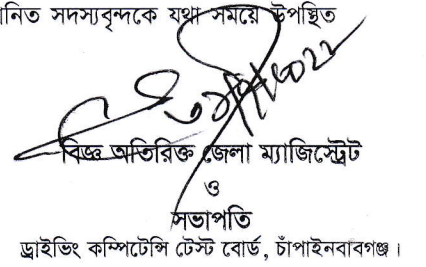 নিত সদস্যবৃন্দকে যথা সময়ে উপস্থিত
বিজ্ঞ অতিরিক্ত জেলা ম্যাজিস্ট্রেট
ও
সভাপতি
ড্রাইভিং কম্পিটেন্সি টেস্ট বোর্ড, চাঁপাইনবাবগঞ্জ।